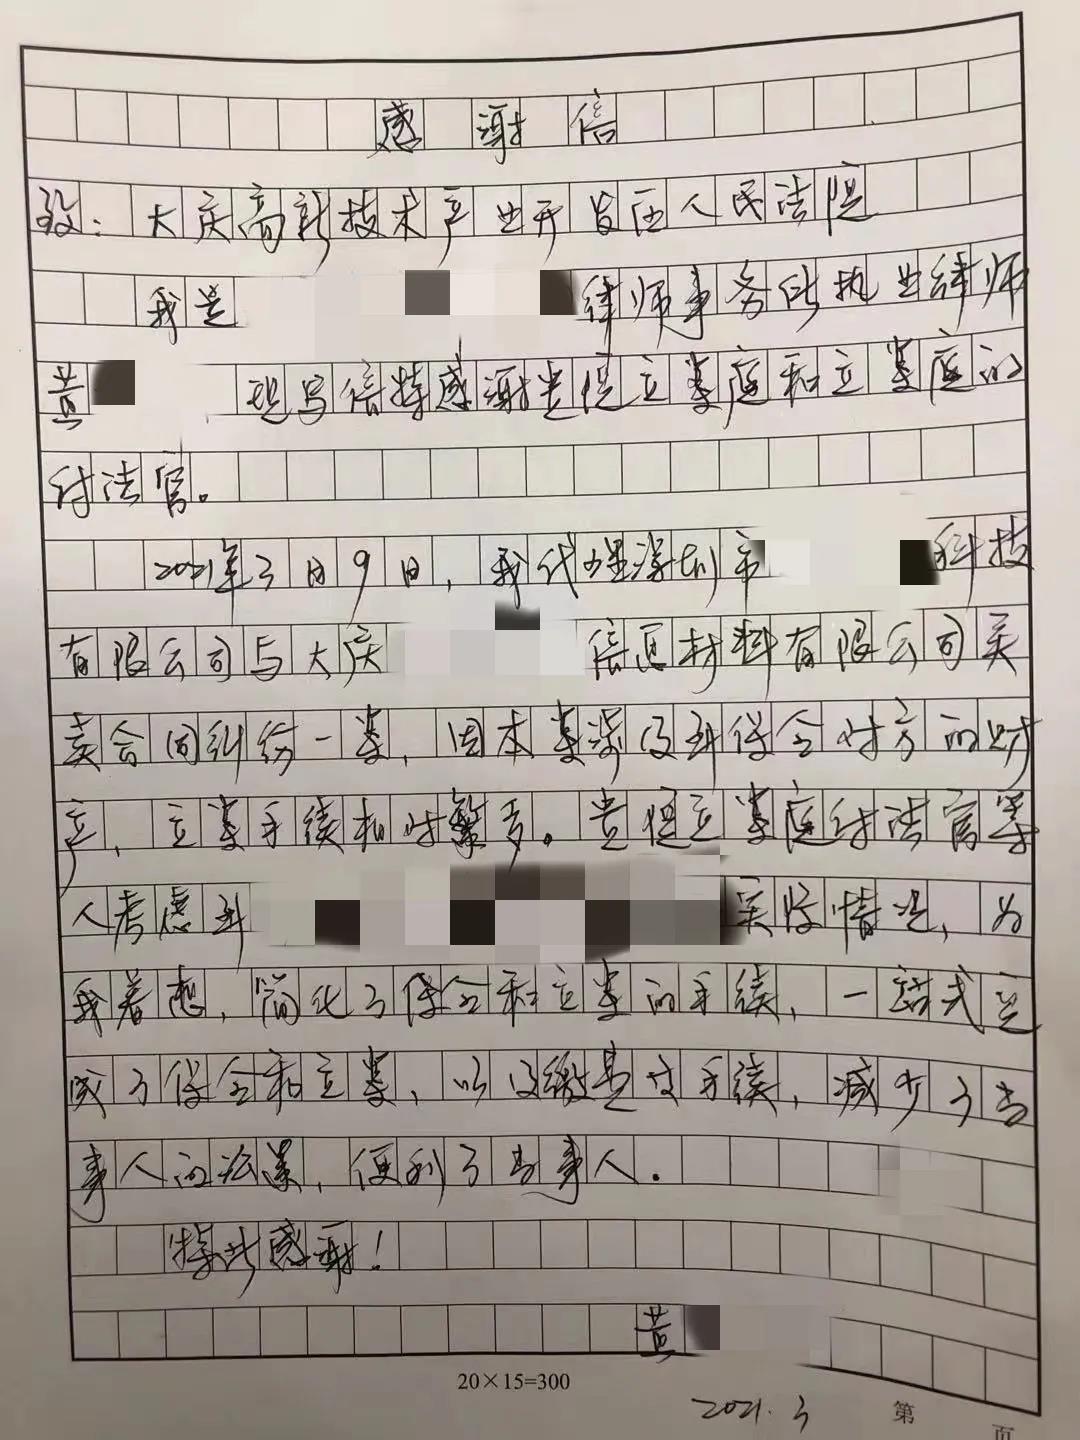 感谢信
致：大庆高新技术产业开发区人民法院
我是 律师事务所执业律师
黄 现写信特感谢贵院立案庭和立案庭的
付法官。
2021年3月9日，我代理深圳市 科技
有限公司与大庆 信息材料有限公司买
卖合同纠纷一案，因本案涉及到保全对方的财
产，立案手续相对繁多。贵院立案庭付法官等
人考虑到 实际情况，为
我着想，简化了保全和立案的手续，一站式完
成了保全和立案，以及缴费等手续，减少了当
事人的诉累，便利了当事人．
特此感谢！
黄
20×15=300
2021.3
第 页